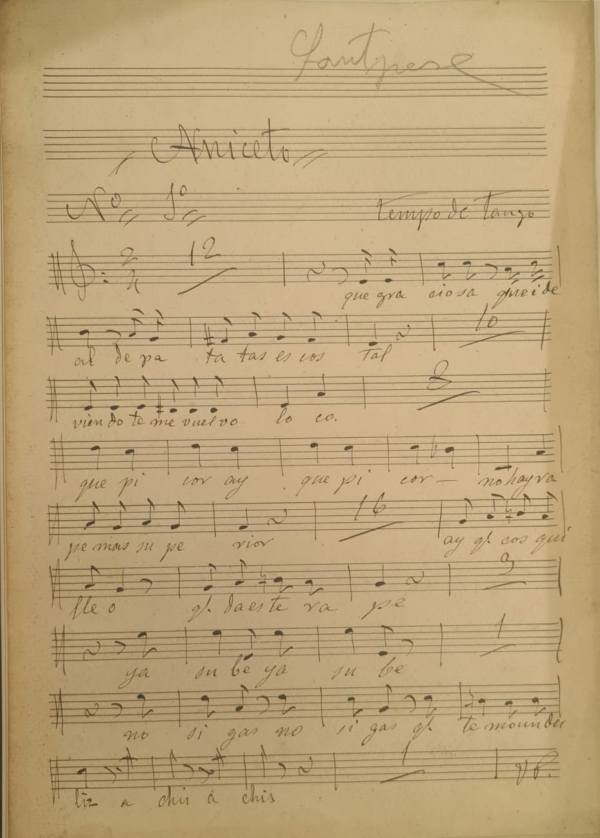 Aniceto
Nº 1º tempo de tango
2 4 12
que gra ciosa que i de
al de pa ta tas es cos tal 10
viendo te me vuelvo lo co. 3
que pi cor ay que pi cor — no hay ra
pe mas su pe rior 16 ay q.e cos qui
lle o q.e da este ra pe 3
ya su be ya su be 1
no si gas no si gas q.e te
liz a chis a chis 1